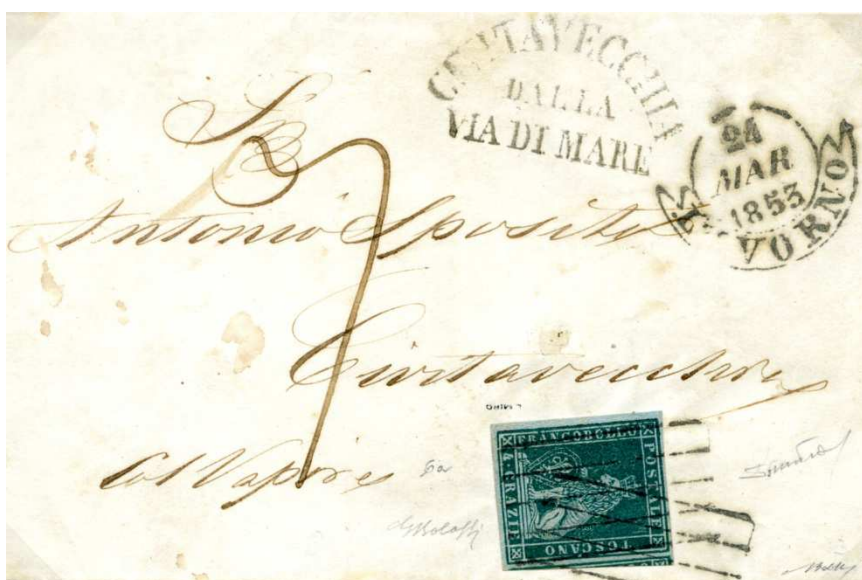 CIVITAVECCHIA
DALLA
VIA DI MARE
24
MAR
1853
LIVORNO
Antonio Sposito
Civitavecchia
Col Vapore
7
FRANCOBOLLO
POSTALE
TOSCANO
4. CRAZIE